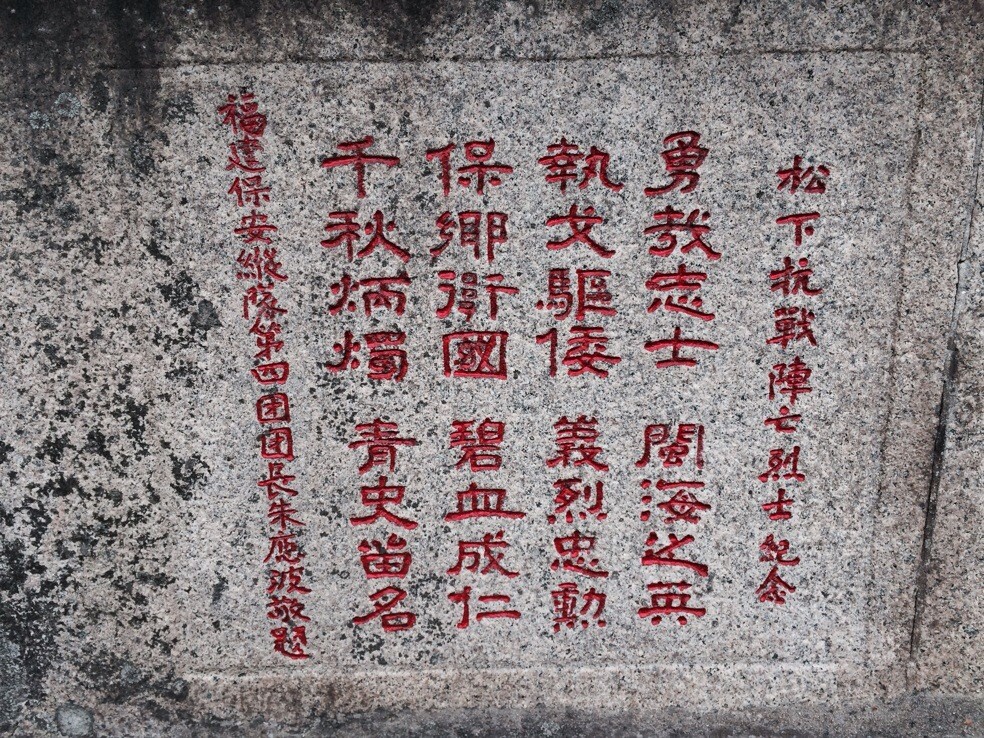 松下抗戰陣亡烈士紀念
勇哉志士 閩海之英
執殳驅倭 義烈忠勳
保鄉衛國 碧血成仁
千秋炳燭 青史留名
福建保安縱隊第四團团長朱應波敬題